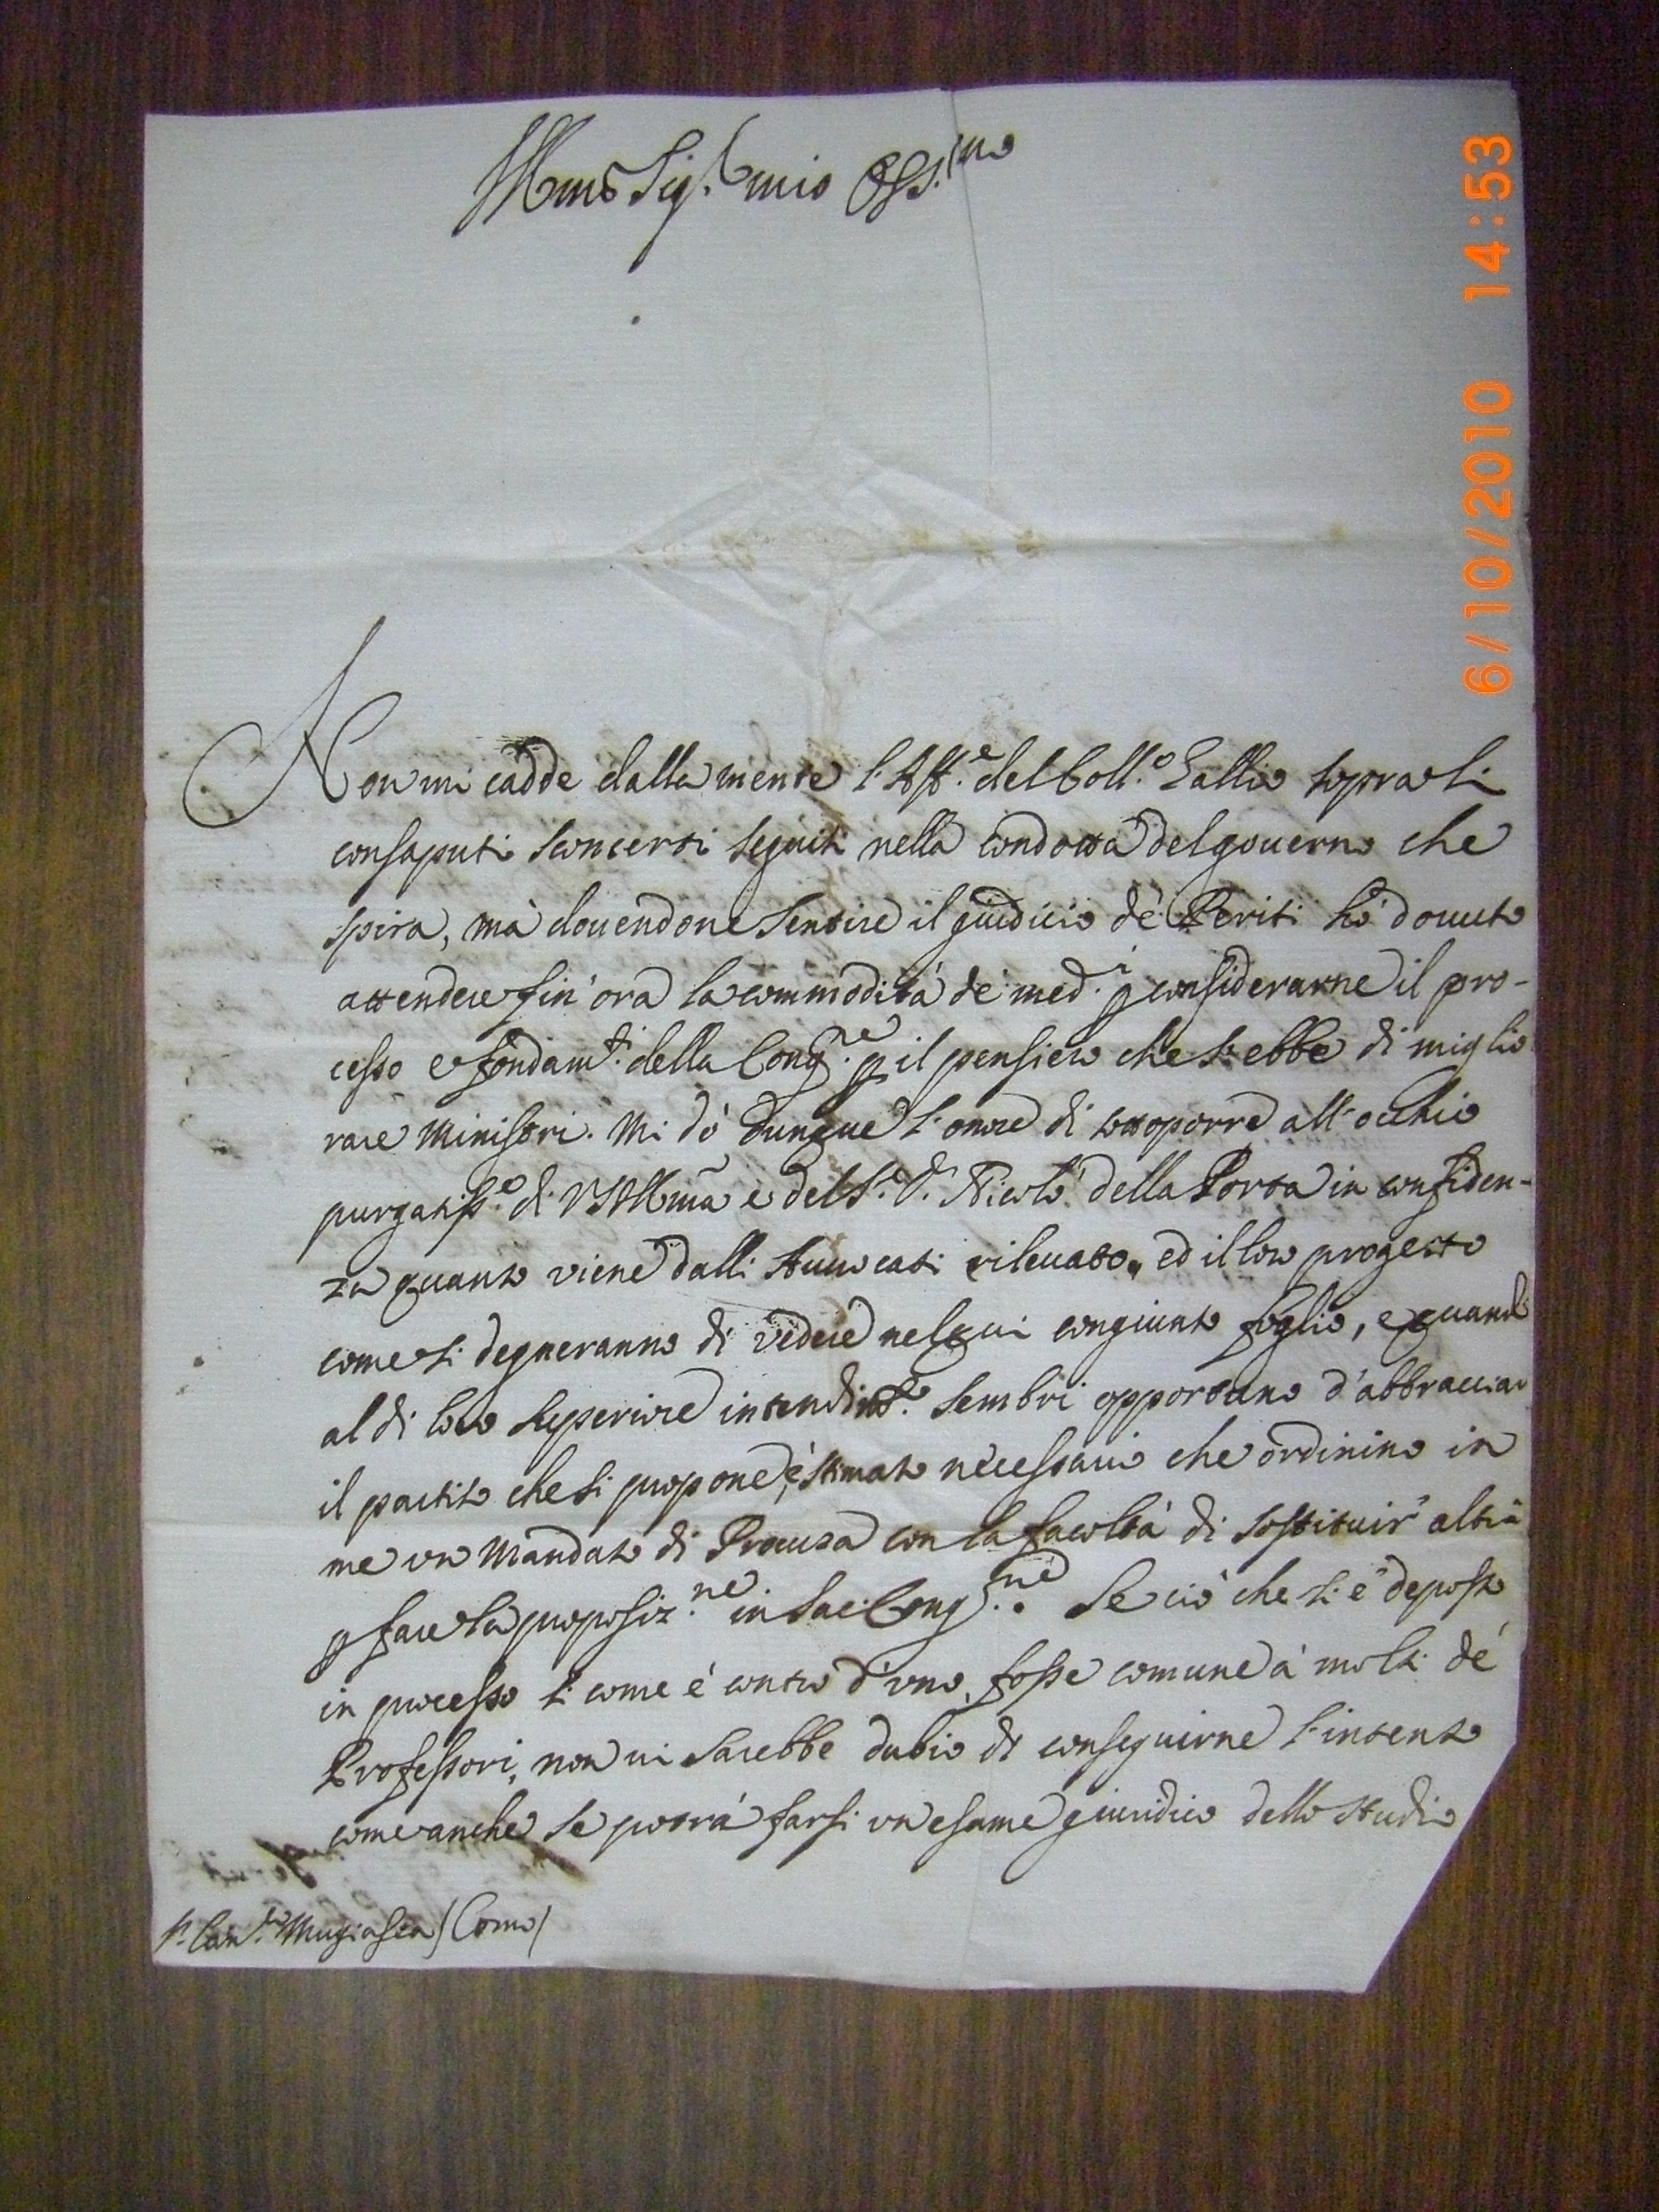 Illmo Sig.r mio Oss.mo
Non mi cadde dalla mente l'Aff.e del Coll.o Gallio sopra li
consaputi sconcerti seguiti nella condotta del gouerno che
spira, mà douendone sentire il giudicio de' Periti hò douuto
attendere fin'ora la commodità de' med.i p considerarne il pro-
cesso e fondam.ti della Cong.ne p il pensiero che s'ebbe di miglio
rare Ministri. Mi dò dunque l'onore di sottoporre all'occhio
purgatiss.o di VS Illma e del S.r D. Nicolò della Porta in confiden-
za quanto viene dalli Auuocati rileuato, ed il loro progetto
come si degneranno di vedere nel qui congiunto foglio, e quando
al di loro superiore intendim.to sembri opportuno d'abbracciar
il partito che si propone, è stimato necessario che ordinino in
me vn Mandato di Procura con la facoltà di sostituir altri
p fare la proposiz.ne in Sac. Cong.ne. Se ciò che si è deposto
in processo si come è contro d'vno, fosse comune à molti de'
Professori, non ui sarebbe dubio di conseguirne l'intento
come anche se potrà farsi vn esame giuridico dello studio
S.r Can.co Mugiasca (Como)
6/10/2010 14:53